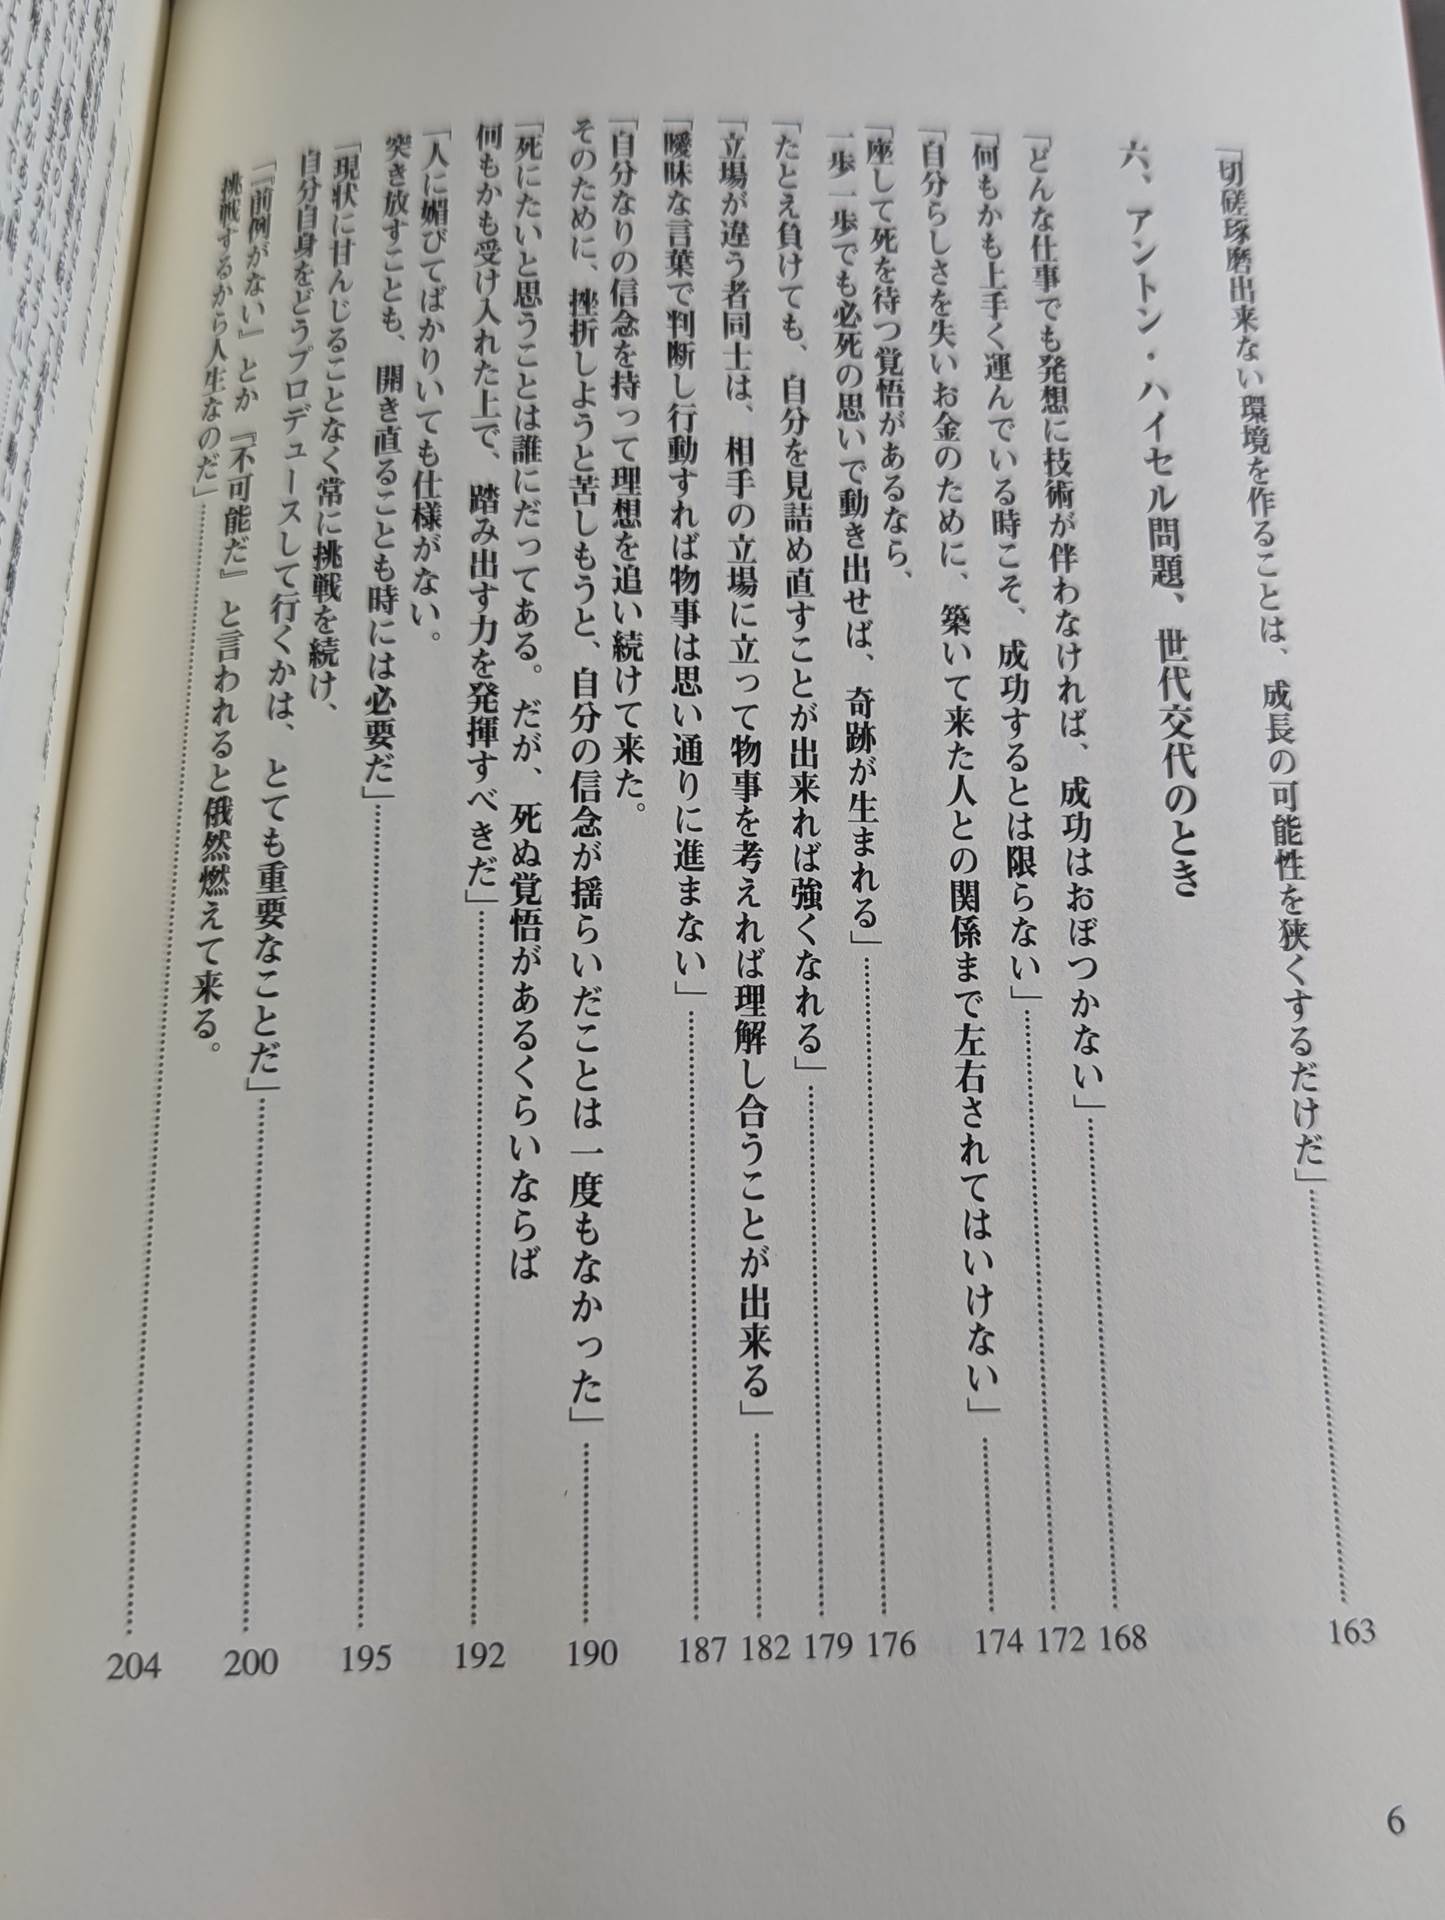 「切磋琢磨出来ない環境を作ることは、成長の可能性を狭くするだけだ」……163
六、アントン・ハイセル問題、世代交代のとき
「どんな仕事でも発想に技術が伴わなければ、成功はおぼつかない」……168
「何もかも上手く運んでいる時こそ、成功するとは限らない」……172
「自分らしさを失いお金のために、築いて来た人との関係まで左右されてはいけない」……174
「座して死を待つ覚悟があるなら、
一歩一歩でも必死の思いで動き出せば、奇跡が生まれる」……176
「たとえ負けても、自分を見詰め直すことが出来れば強くなれる」……179
「立場が違う者同士は、相手の立場に立って物事を考えれば理解し合うことが出来る」……182
「曖昧な言葉で判断し行動すれば物事は思い通りに進まない」……187
「自分なりの信念を持って理想を追い続けて来た。
そのために、挫折しようと苦しもうと、自分の信念が揺らいだことは一度もなかった」……190
「死にたいと思うことは誰にだってある。だが、死ぬ覚悟があるくらいならば
何もかも受け入れた上で、踏み出す力を発揮すべきだ」……192
「人に媚びてばかりいても仕様がない。
突き放すことも、開き直ることも時には必要だ」……195
「現状に甘んじることなく常に挑戦を続け、
自分自身をどうプロデュースして行くかは、とても重要なことだ」……200
「『前例がない』とか『不可能だ』と言われると俄然燃えて来る。
挑戦するから人生なのだ」……204
6